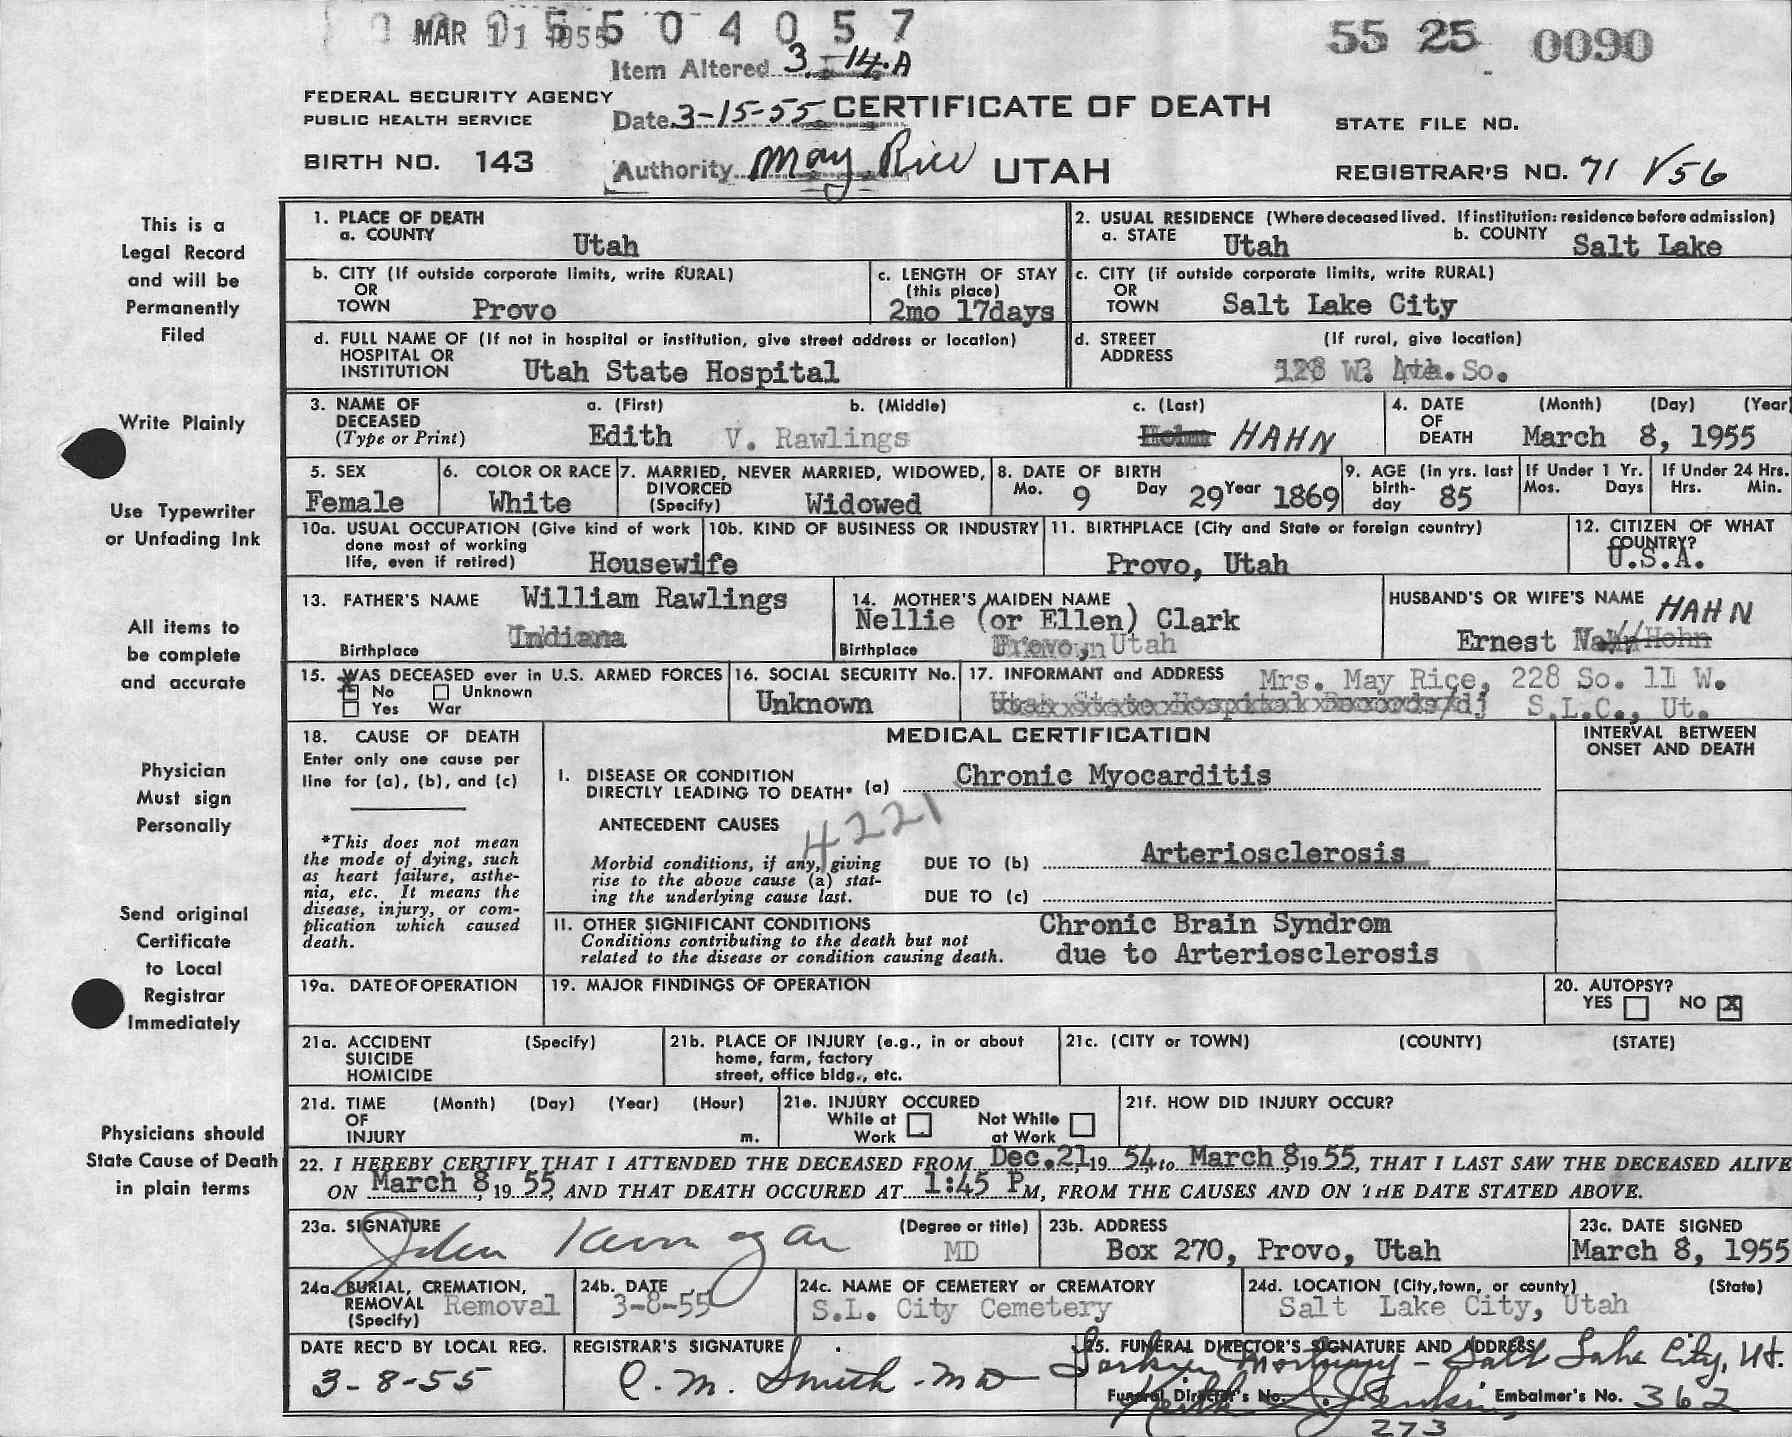 MAR 11 1955 5 5 0 4 0 5 7
55 25 0090
Item Altered 3 - 14.A
FEDERAL SECURITY AGENCY
PUBLIC HEALTH SERVICE
Date 3-15-55 CERTIFICATE OF DEATH
STATE FILE NO.
BIRTH NO. 143
Authority May Rice UTAH
REGISTRAR'S NO. 71 V56
This is a
Legal Record
and will be
Permanently
Filed
Write Plainly
Use Typewriter
or Unfading Ink
All items to
be complete
and accurate
Physician
Must sign
Personally
Send original
Certificate
to Local
Registrar
Immediately
Physicians should
State Cause of Death
in plain terms
1. PLACE OF DEATH
a. COUNTY Utah
2. USUAL RESIDENCE (Where deceased lived. If institution: residence before admission)
a. STATE Utah b. COUNTY Salt Lake
b. CITY (If outside corporate limits, write RURAL)
OR
TOWN Provo
c. LENGTH OF STAY
(this place)
2mo 17days
c. CITY (if outside corporate limits, write RURAL)
OR
TOWN Salt Lake City
d. FULL NAME OF (If not in hospital or institution, give street address or location)
HOSPITAL OR
INSTITUTION Utah State Hospital
d. STREET (If rural, give location)
ADDRESS
128 W. 4th. So.
3. NAME OF a. (First) b. (Middle) c. (Last)
DECEASED
(Type or Print) Edith V. Rawlings Hohn HAHN
4. DATE (Month) (Day) (Year)
OF
DEATH March 8, 1955
5. SEX
Female
6. COLOR OR RACE
White
7. MARRIED, NEVER MARRIED, WIDOWED,
DIVORCED
(Specify) Widowed
8. DATE OF BIRTH
Mo. 9 Day 29 Year 1869
9. AGE (In yrs. last
birth-
day 85
If Under 1 Yr.
Mos. Days
If Under 24 Hrs.
Hrs. Min.
10a. USUAL OCCUPATION (Give kind of work
done most of working
life, even if retired) Housewife
10b. KIND OF BUSINESS OR INDUSTRY
11. BIRTHPLACE (City and State or foreign country)
Provo, Utah
12. CITIZEN OF WHAT
COUNTRY?
U.S.A.
13. FATHER'S NAME William Rawlings
Birthplace Indiana
14. MOTHER'S MAIDEN NAME
Nellie (or Ellen) Clark
Birthplace Provo, Utah
HUSBAND'S OR WIFE'S NAME HAHN
Ernest Hohn
15. WAS DECEASED ever in U.S. ARMED FORCES
No Unknown
Yes War
16. SOCIAL SECURITY No.
Unknown
17. INFORMANT and ADDRESS Mrs. May Rice, 228 So. 11 W.
Utah State Hospital Records/dj S.L.C., Ut.
18. CAUSE OF DEATH
Enter only one cause per
line for (a), (b), and (c)
*This does not mean
the mode of dying, such
as heart failure, asthe-
nia, etc. It means the
disease, injury, or com-
plication which caused
death.
MEDICAL CERTIFICATION
INTERVAL BETWEEN
ONSET AND DEATH
I. DISEASE OR CONDITION
DIRECTLY LEADING TO DEATH* (a) Chronic Myocarditis
ANTECEDENT CAUSES
4221
Morbid conditions, if any, giving
rise to the above cause (a) stat-
ing the underlying cause last.
DUE TO (b) Arteriosclerosis
DUE TO (c)
II. OTHER SIGNIFICANT CONDITIONS
Conditions contributing to the death but not
related to the disease or condition causing death.
Chronic Brain Syndrom
due to Arteriosclerosis
19a. DATE OF OPERATION
19. MAJOR FINDINGS OF OPERATION
20. AUTOPSY?
YES NO X
21a. ACCIDENT (Specify)
SUICIDE
HOMICIDE
21b. PLACE OF INJURY (e.g., in or about
home, farm, factory
street, office bldg., etc.
21c. (CITY or TOWN) (COUNTY) (STATE)
21d. TIME (Month) (Day) (Year) (Hour)
OF
INJURY m.
21e. INJURY OCCURED
While at Not While
Work at Work
21f. HOW DID INJURY OCCUR?
22. I HEREBY CERTIFY THAT I ATTENDED THE DECEASED FROM Dec. 21, 19 54, to March 8 19 55, THAT I LAST SAW THE DECEASED ALIVE
ON March 8, 19 55, AND THAT DEATH OCCURED AT 1:45 P M, FROM THE CAUSES AND ON THE DATE STATED ABOVE.
23a. SIGNATURE (Degree or title)
MD
23b. ADDRESS
Box 270, Provo, Utah
23c. DATE SIGNED
March 8, 1955
24a. BURIAL, CREMATION,
REMOVAL Removal
(Specify)
24b. DATE
3-8-55
24c. NAME OF CEMETERY or CREMATORY
S.L. City Cemetery
24d. LOCATION (City, town, or county) (State)
Salt Lake City, Utah
DATE REC'D BY LOCAL REG.
3-8-55
REGISTRAR'S SIGNATURE
C. M. Smith - MD
25. FUNERAL DIRECTOR'S SIGNATURE AND ADDRESS
Mortuary - Salt Lake City, Ut.
Funeral Director's No. Embalmer's No. 362
273